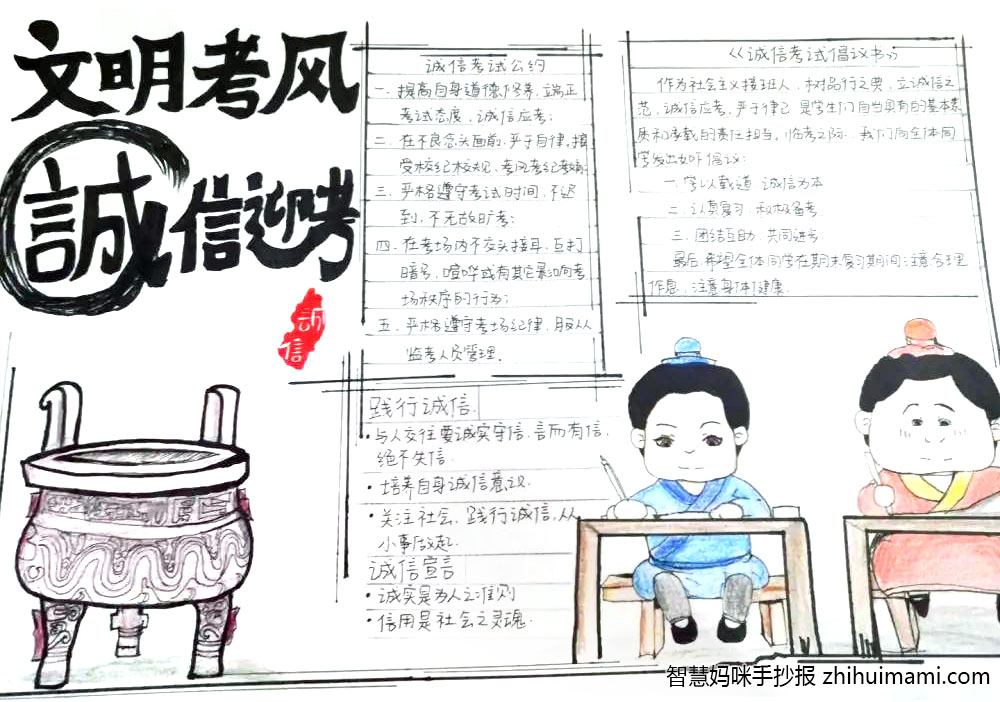 文明考风
誠信迎考
誠
信
诚信考试公约
一. 提高自身道德修养, 端正
考试态度, 诚信应考;
二. 在不良念头面前, 严于自律, 接
受校纪校规、考风考纪考
三. 严格遵守考试时间, 不迟
到, 不无故旷考;
四. 在考场内不交头接耳, 互打
暗号, 喧哗或有其它影响考
场秩序的行为;
五. 严格遵守考场纪律, 服从
监考人员管理.
《诚信考试倡议书》
作为社会主义接班人, 树品行之典, 立诚信之
范, 诚信应考, 严于律己 是学生们自当具有的基本素
质和承载的责任担当。临考之际, 我们向全体同
学发出如下倡议:
一. 学以载道 诚信为本
二. 认真复习, 积极备考
三. 团结互助, 共同进步
最后 希望全体同学在期末复习期间 注意合理
作息, 注意身体健康.
践行诚信.
• 与人交往要诚实守信, 言而有信,
绝不失信.
• 培养自身诚信意识.
• 关注社会、践行诚信, 从
小事做起.
诚信宣言
• 诚实是为人之准则
• 信用是社会之灵魂.
智慧妈咪手抄报 zhihuimami.com